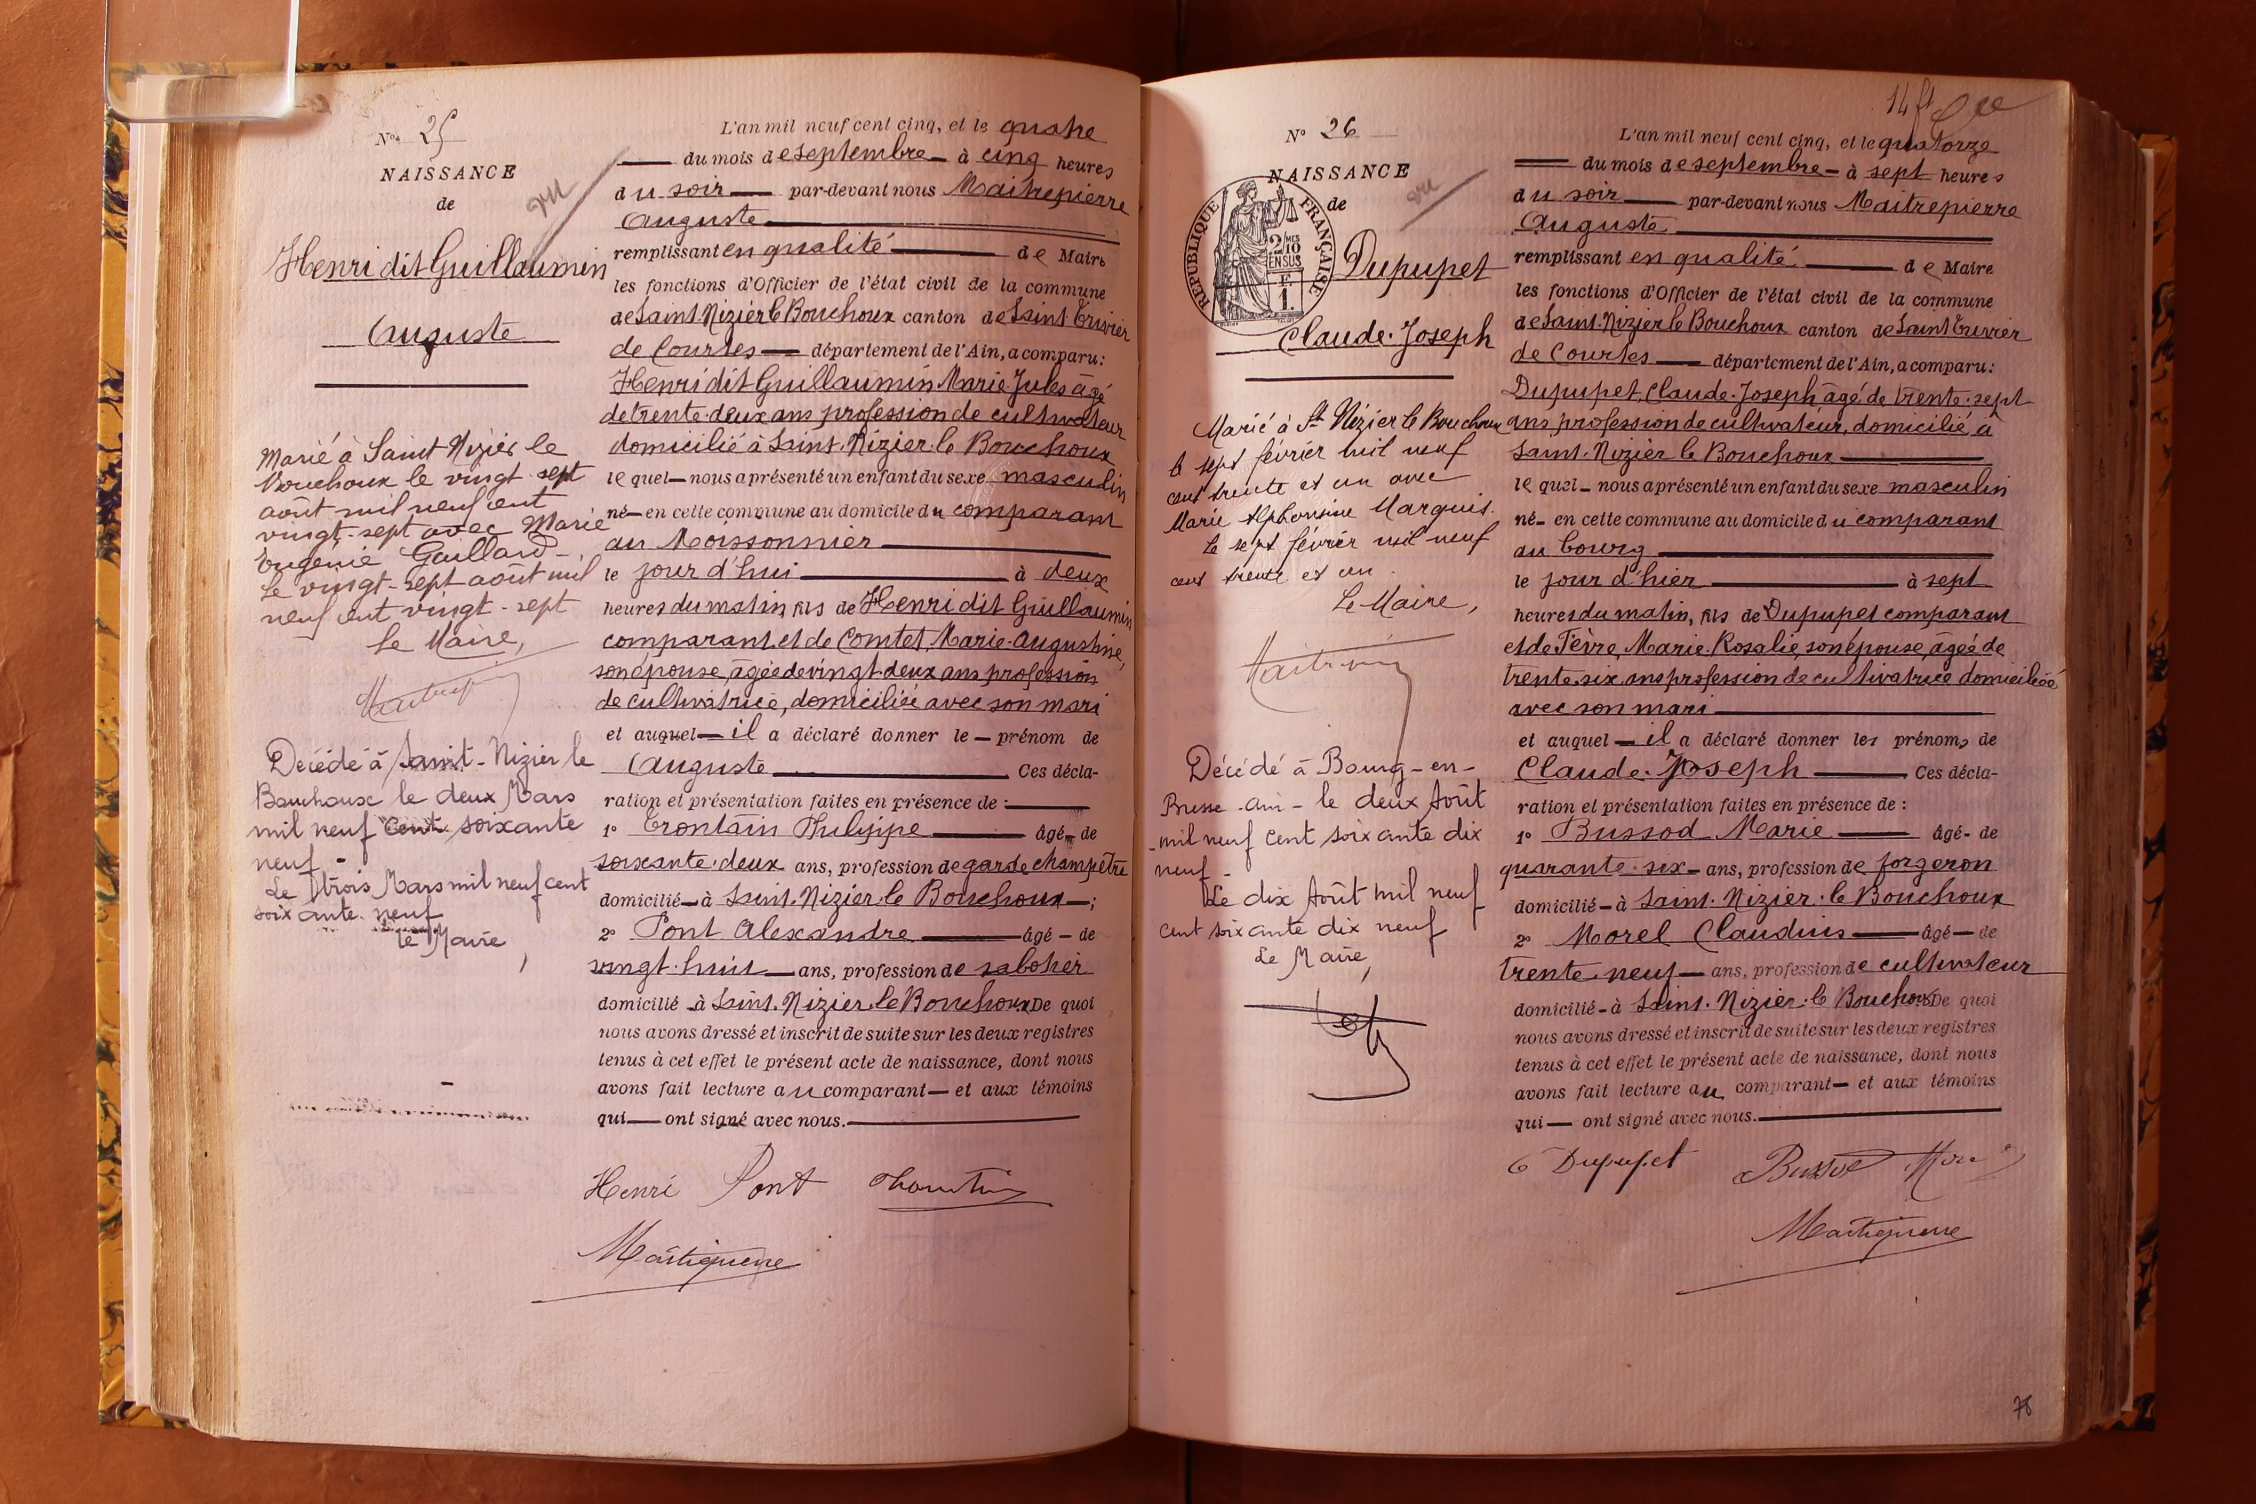 Nº 25
NAISSANCE
de
Henri dit Guillaumin
Auguste
Marié à Saint Nizier le
Bouchoux le vingt-sept
août mil neuf cent
vingt-sept avec Marie
Eugénie Gaillard
Le vingt-sept août mil
neuf cent vingt-sept
Le Maire,
Décédé à Saint-Nizier le
Bouchoux le deux Mars
mil neuf cent soixante
neuf -
Le trois Mars mil neuf cent
soixante neuf
Le Maire,
L'an mil neuf cent cinq, et le quatre
du mois de septembre à cinq heures
du soir par-devant nous Maitrepierre
Auguste
remplissant en qualité de Maire
les fonctions d'Officier de l'état civil de la commune
de Saint Nizier le Bouchoux canton de Saint Trivier
de Courtes département de l'Ain, a comparu:
Henri dit Guillaumin Marie Jules âgé
de trente-deux ans profession de cultivateur
domicilié à Saint-Nizier-le Bouchoux
lequel nous a présenté un enfant du sexe masculin
né en cette commune au domicile du comparant
au Moissonnier
le jour d'hui à deux
heures du matin, fils de Henri dit Guillaumin
comparant et de Comtet, Marie-Augustine,
son épouse, âgée de vingt-deux ans profession
de cultivatrice, domiciliée avec son mari
et auquel il a déclaré donner le prénom de
Auguste Ces décla-
ration et présentation faites en présence de :
1º Trontain Philippe âgé de
soixante-deux ans, profession de garde champêtre
domicilié à Saint-Nizier-le Bouchoux ;
2º Pont Alexandre âgé de
vingt-huit ans, profession de sabotier
domicilié à Saint-Nizier-le Bouchoux De quoi
nous avons dressé et inscrit de suite sur les deux registres
tenus à cet effet le présent acte de naissance, dont nous
avons fait lecture au comparant et aux témoins
qui ont signé avec nous.
Henri Pont
Maitrepierre
Nº 26
NAISSANCE
de
RÉPUBLIQUE FRANÇAISE
2/10 MES
EN SUS
1 F.
Dupupet
Claude-Joseph
Marié à St Nizier le Bouchoux
le sept février mil neuf
cent trente et un avec
Marie Alphonsine Marguis.
Le sept février mil neuf
cent trente et un.
Le Maire,
Décédé à Bourg-en-
Bresse -Ain- le deux Août
mil neuf cent soixante dix
neuf -
Le dix Août mil neuf
cent soixante dix neuf
Le Maire,
L'an mil neuf cent cinq, et le quatorze
du mois de septembre à sept heures
du soir par-devant nous Maitrepierre
Auguste
remplissant en qualité de Maire
les fonctions d'Officier de l'état civil de la commune
de Saint-Nizier le Bouchoux canton de Saint Trivier
de Courtes département de l'Ain, a comparu:
Dupupet, Claude-Joseph, âgé de trente-sept
ans, profession de cultivateur, domicilié à
Saint-Nizier le Bouchoux
lequel nous a présenté un enfant du sexe masculin
né en cette commune au domicile du comparant
au bourg
le jour d'hier à sept
heures du matin, fils de Dupupet comparant
et de Fèvre, Marie-Rosalie, son épouse, âgée de
trente-six ans profession de cultivatrice domiciliée
avec son mari
et auquel il a déclaré donner les prénoms de
Claude-Joseph Ces décla-
ration et présentation faites en présence de :
1º Bussod Marie âgé de
quarante-six ans, profession de forgeron
domicilié à Saint-Nizier-le Bouchoux
2º Morel Claudius âgé de
trente-neuf ans, profession de cultivateur
domicilié à Saint-Nizier-le Bouchoux De quoi
nous avons dressé et inscrit de suite sur les deux registres
tenus à cet effet le présent acte de naissance, dont nous
avons fait lecture au comparant et aux témoins
qui ont signé avec nous.
Dupupet Bussod
Maitrepierre
78